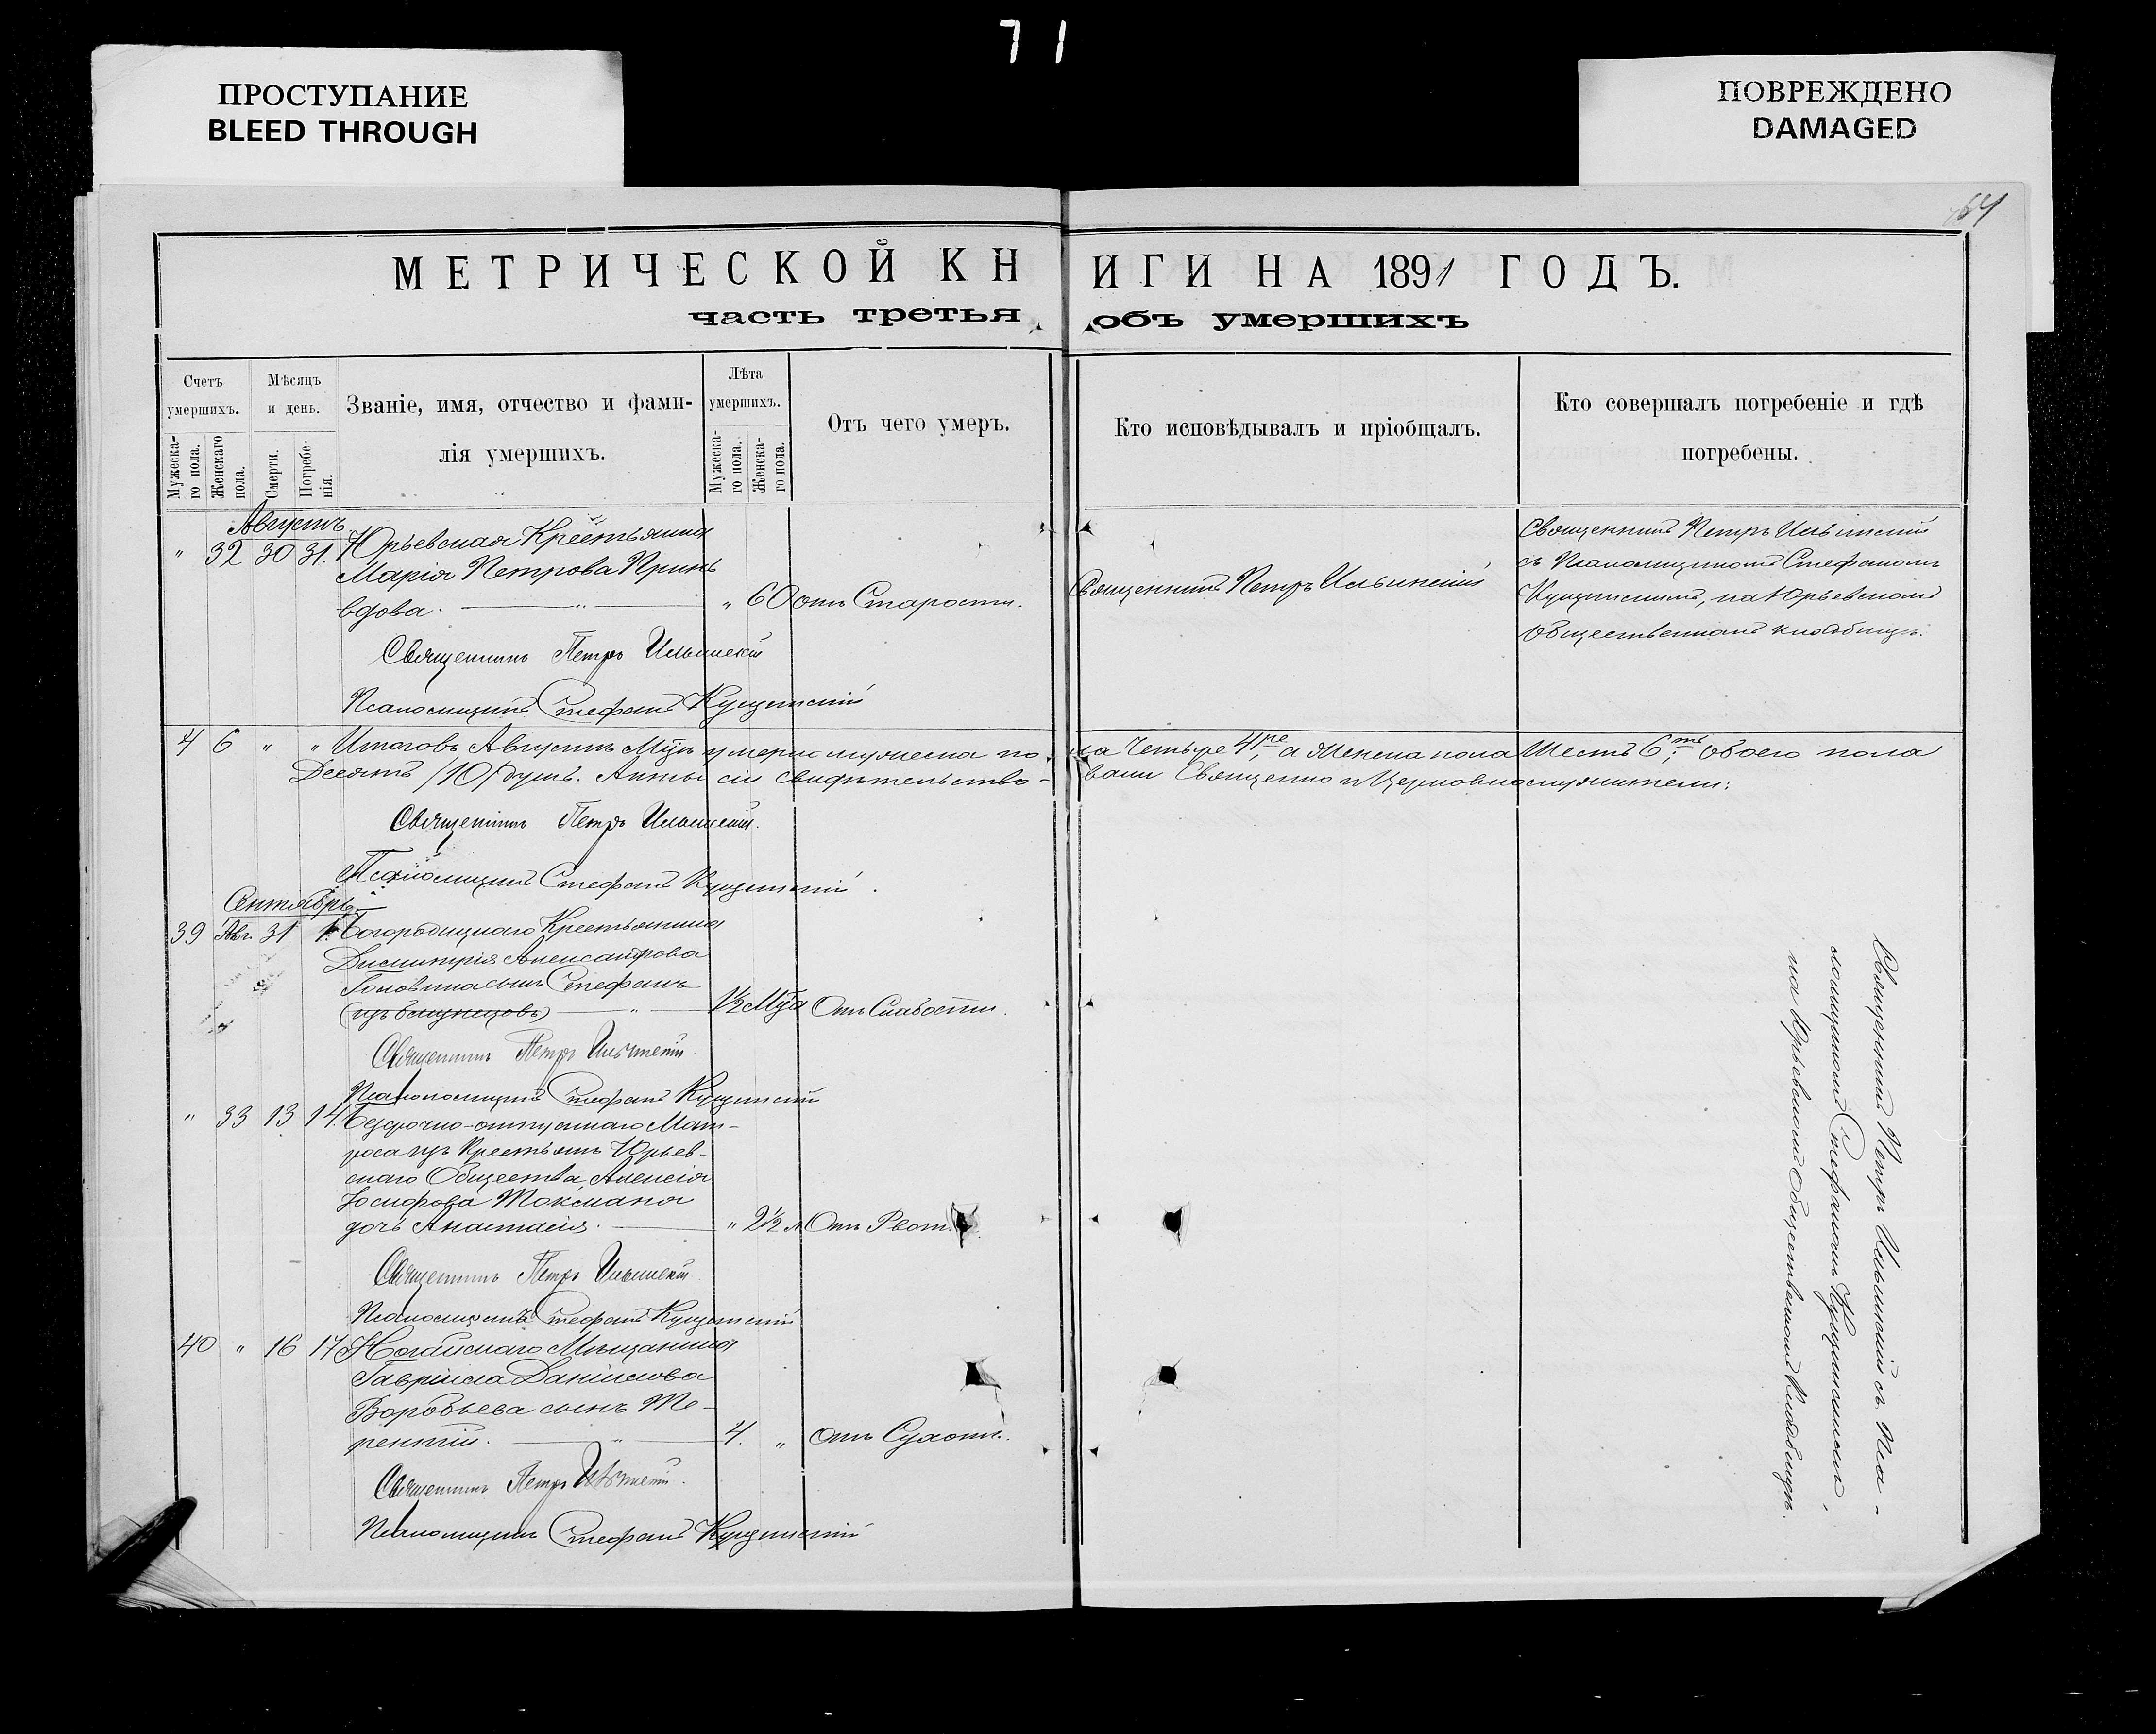 71
ПРОСТУПАНИЕ
BLEED THROUGH
ПОВРЕЖДЕНО
DAMAGED
64
МЕТРИЧЕСКОЙ КНИГИ НА 1891 ГОДЪ.
часть третья объ умершихъ
Счетъ умершихъ.
Мужеска-
го пола.
Женскаго
пола.
Мѣсяцъ
и день.
Смерти.
Погребе-
нія.
Званіе, имя, отчество и фами-
лія умершихъ.
Лѣта
умершихъ.
Мужеска-
го пола.
Женска-
го пола.
Отъ чего умеръ.
Кто исповѣдывалъ и пріобщалъ.
Кто совершалъ погребеніе и гдѣ
погребены.
Августъ
" 32 30 31. Юрьевская Крестьянка
Марія Петрова
вдова. " 60 отъ Старости.
Священникъ Петръ Ильинскій
Священникъ Петръ Ильинскій
съ Псаломщикомъ Стефаномъ
Кущинскимъ, на Юрьевскомъ
общественномъ кладбищѣ.
Священникъ Петръ Ильинскій
Псаломщикъ Стефанъ Кущинскій
4 6 " " Итого въ Августѣ Мцѣ умерло мужеска по-ла Четыре 4ре, а Женска пола Шесть 6ть, обоего пола
Десять /10/ душъ. Акты сіи свидѣтельство-вали Священно и Церковнослужители:
Священникъ Петръ Ильинскій.
Псаломщикъ Стефанъ Кущинскій.
Сентябрь
39 Авг. 31 1. Богородицкаго Крестьянина
Димитрія Александрова
Головина сынъ Стефанъ
(изъ близнецовъ) 1/2 Мца Отъ Слабости.
Священникъ Петръ Ильинскій
Псаломщикъ Стефанъ Кущинскій
" 33 13 14. Безсрочно-отпускнаго Мат-
роса изъ Крестьянъ Юрьев-
скаго Общества Алексія
Іосифова Токмана
дочь Анастасія. " 2 1/2 л. Отъ Рвот
Священникъ Петръ Ильинскій
Псаломщикъ Стефанъ Кущинскій
40 " 16 17 Ногайскаго Мѣщанина
Гавріила Данилова
Воробьева сынъ Те-
рентій. 4. " Отъ Сухотъ.
Священникъ Петръ Ильинскій.
Псаломщикъ Стефанъ Кущинскій
Священникъ Петръ Ильинскій съ Пса-
ломщикомъ Стефаномъ Кущинскимъ,
на Юрьевскомъ Общественномъ Кладбищѣ.